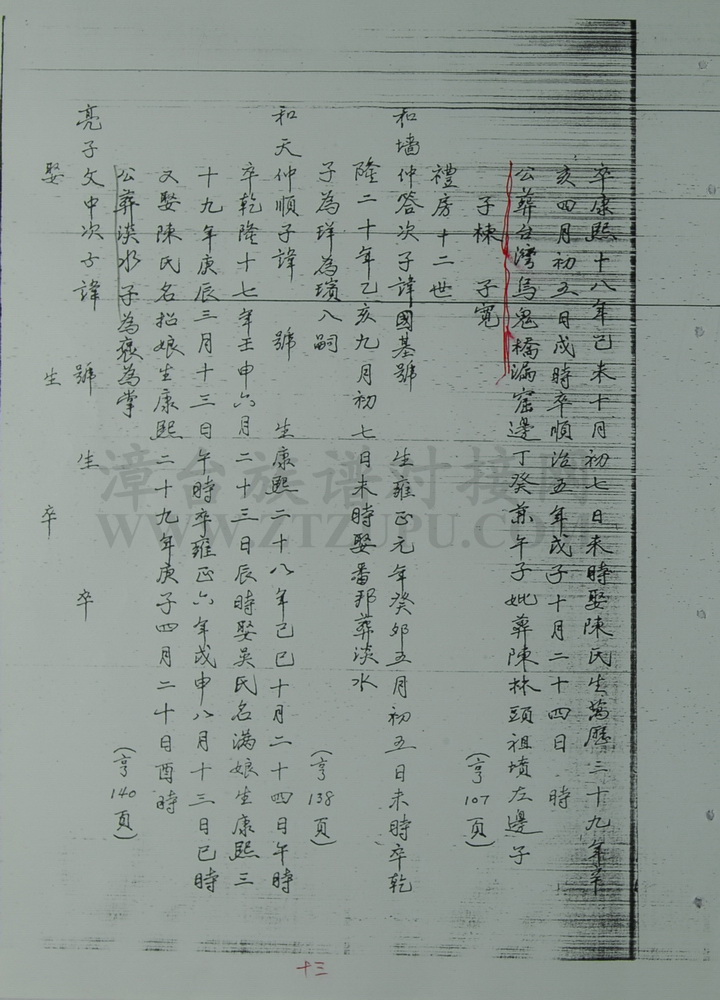 卒康熙十八年己未十月初七日未時娶陳氏生萬曆三十九年辛
亥四月初五日戌時卒順治五年戊子十月二十四日 時
公葬台灣烏鬼橋漏窟邊丁癸兼午子妣葬陳林頭祖墳左邊子
子棟 子寬
(亨107頁)
禮房十二世
和墻仲答次子諱國基號 生雍正元年癸卯五月初五日未時卒乾
隆二十年乙亥九月初七日未時娶番邦葬淡水
子為琣為璸入嗣
(亨138頁)
和天仲順子諱 號 生康熙二十八年己巳十月二十四日午時
卒乾隆十七年壬申六月二十三日辰時娶吳氏名滿娘生康熙三
十九年庚辰三月十三日午時卒雍正六年戊申八月十三日巳時
又娶陳氏名招娘生康熙二十九年庚子四月二十日酉時
公葬淡水子為褒為掌
(亨140頁)
亮子文申次子諱 號 生 卒
娶 生 卒
十三
漳台族谱对接网
WWW.ZTZUPU.COM